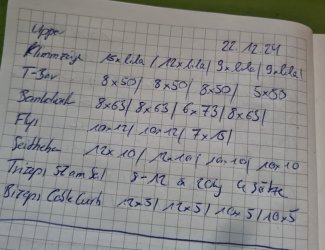 Upper 22.12.24
Klimmzüge 15x lila / 12x lila / 9x lila / 9x lila /
T-Bar 8x50 / 8x50 / 8x50 / 5x50
8x65 / 8x65 / 6x75 / 8x65 /
Flys 10x12 / 10x12 / 7x15 /
Seitheben 12x10 / 12x10 / 10x10 / 10x10
Trizeps 8-12 à 20kg 4 Sätze
Bizeps Cable Curls 12x5 / 12x5 / 10x5 / 10x5